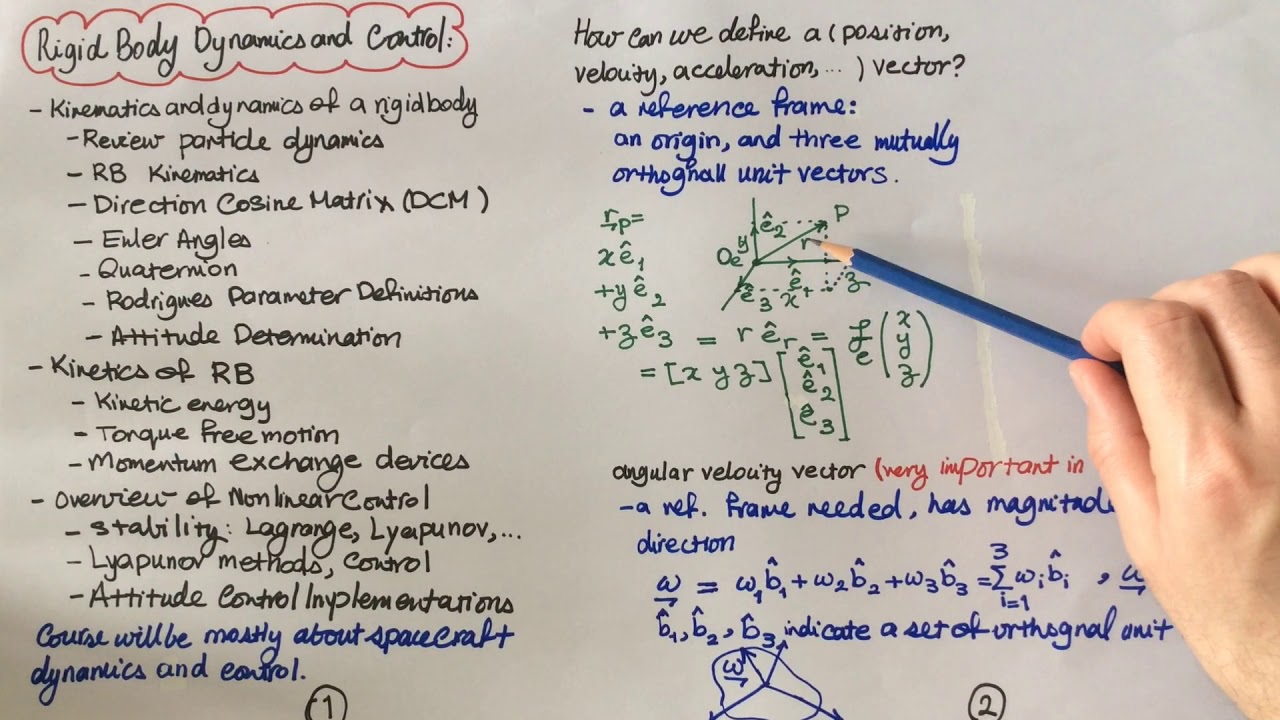 Rigid Body Dynamics and Control:
- Kinematics and dynamics of a rigid body
- Review particle dynamics
- RB Kinematics
- Direction Cosine Matrix (DCM)
- Euler Angles
- Quaternion
- Rodrigues Parameter Definitions
- Attitude Determination
- Kinetics of RB
- Kinetic energy
- Torque free motion
- Momentum exchange devices
- Overview of Nonlinear Control
- Stability: Lagrange, Lyapunov,...
- Lyapunov methods, Control
- Attitude Control Implementations
Course will be mostly about spacecraft
dynamics and control.
1
How can we define a (position,
velouity, acceleration, ...) vector?
- a reference frame:
an origin, and three mutually
orthognall unit vectors.
r_p =
x ê₁
+ y ê₂
+ z ê₃ = r ê_r = F_e (x y z)
= [x y z] [ê₁ ê₂ ê₃]
y ê₂ P
O_e r
ê₃ x ê₁ z
angular velouity vector (very important in
- a ref. frame needed, has magnitad
direction
ω = ω₁b̂₁ + ω₂b̂₂ + ω₃b̂₃ = Σ³ᵢ₌₁ ωᵢb̂ᵢ , ω
b̂₁, b̂₂, b̂₃ indicate a set of orthognal unit
ω
2